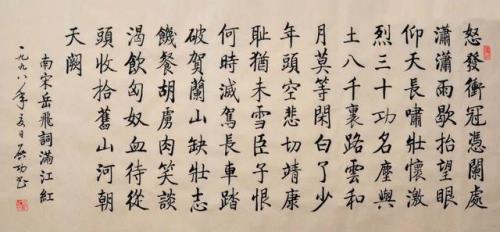 怒發衝冠憑闌處
瀟瀟雨歇抬望眼
仰天長嘯壯懷激
烈三十功名塵與
土八千裏路雲和
月莫等閑白了少
年頭空悲切靖康
耻猶未雪臣子恨
何時滅駕長車踏
破賀蘭山缺壯志
饑餐胡虜肉笑談
渴飲匈奴血待從
頭收拾舊山河朝
天闕
南宋岳飛詞滿江紅
一九九八年